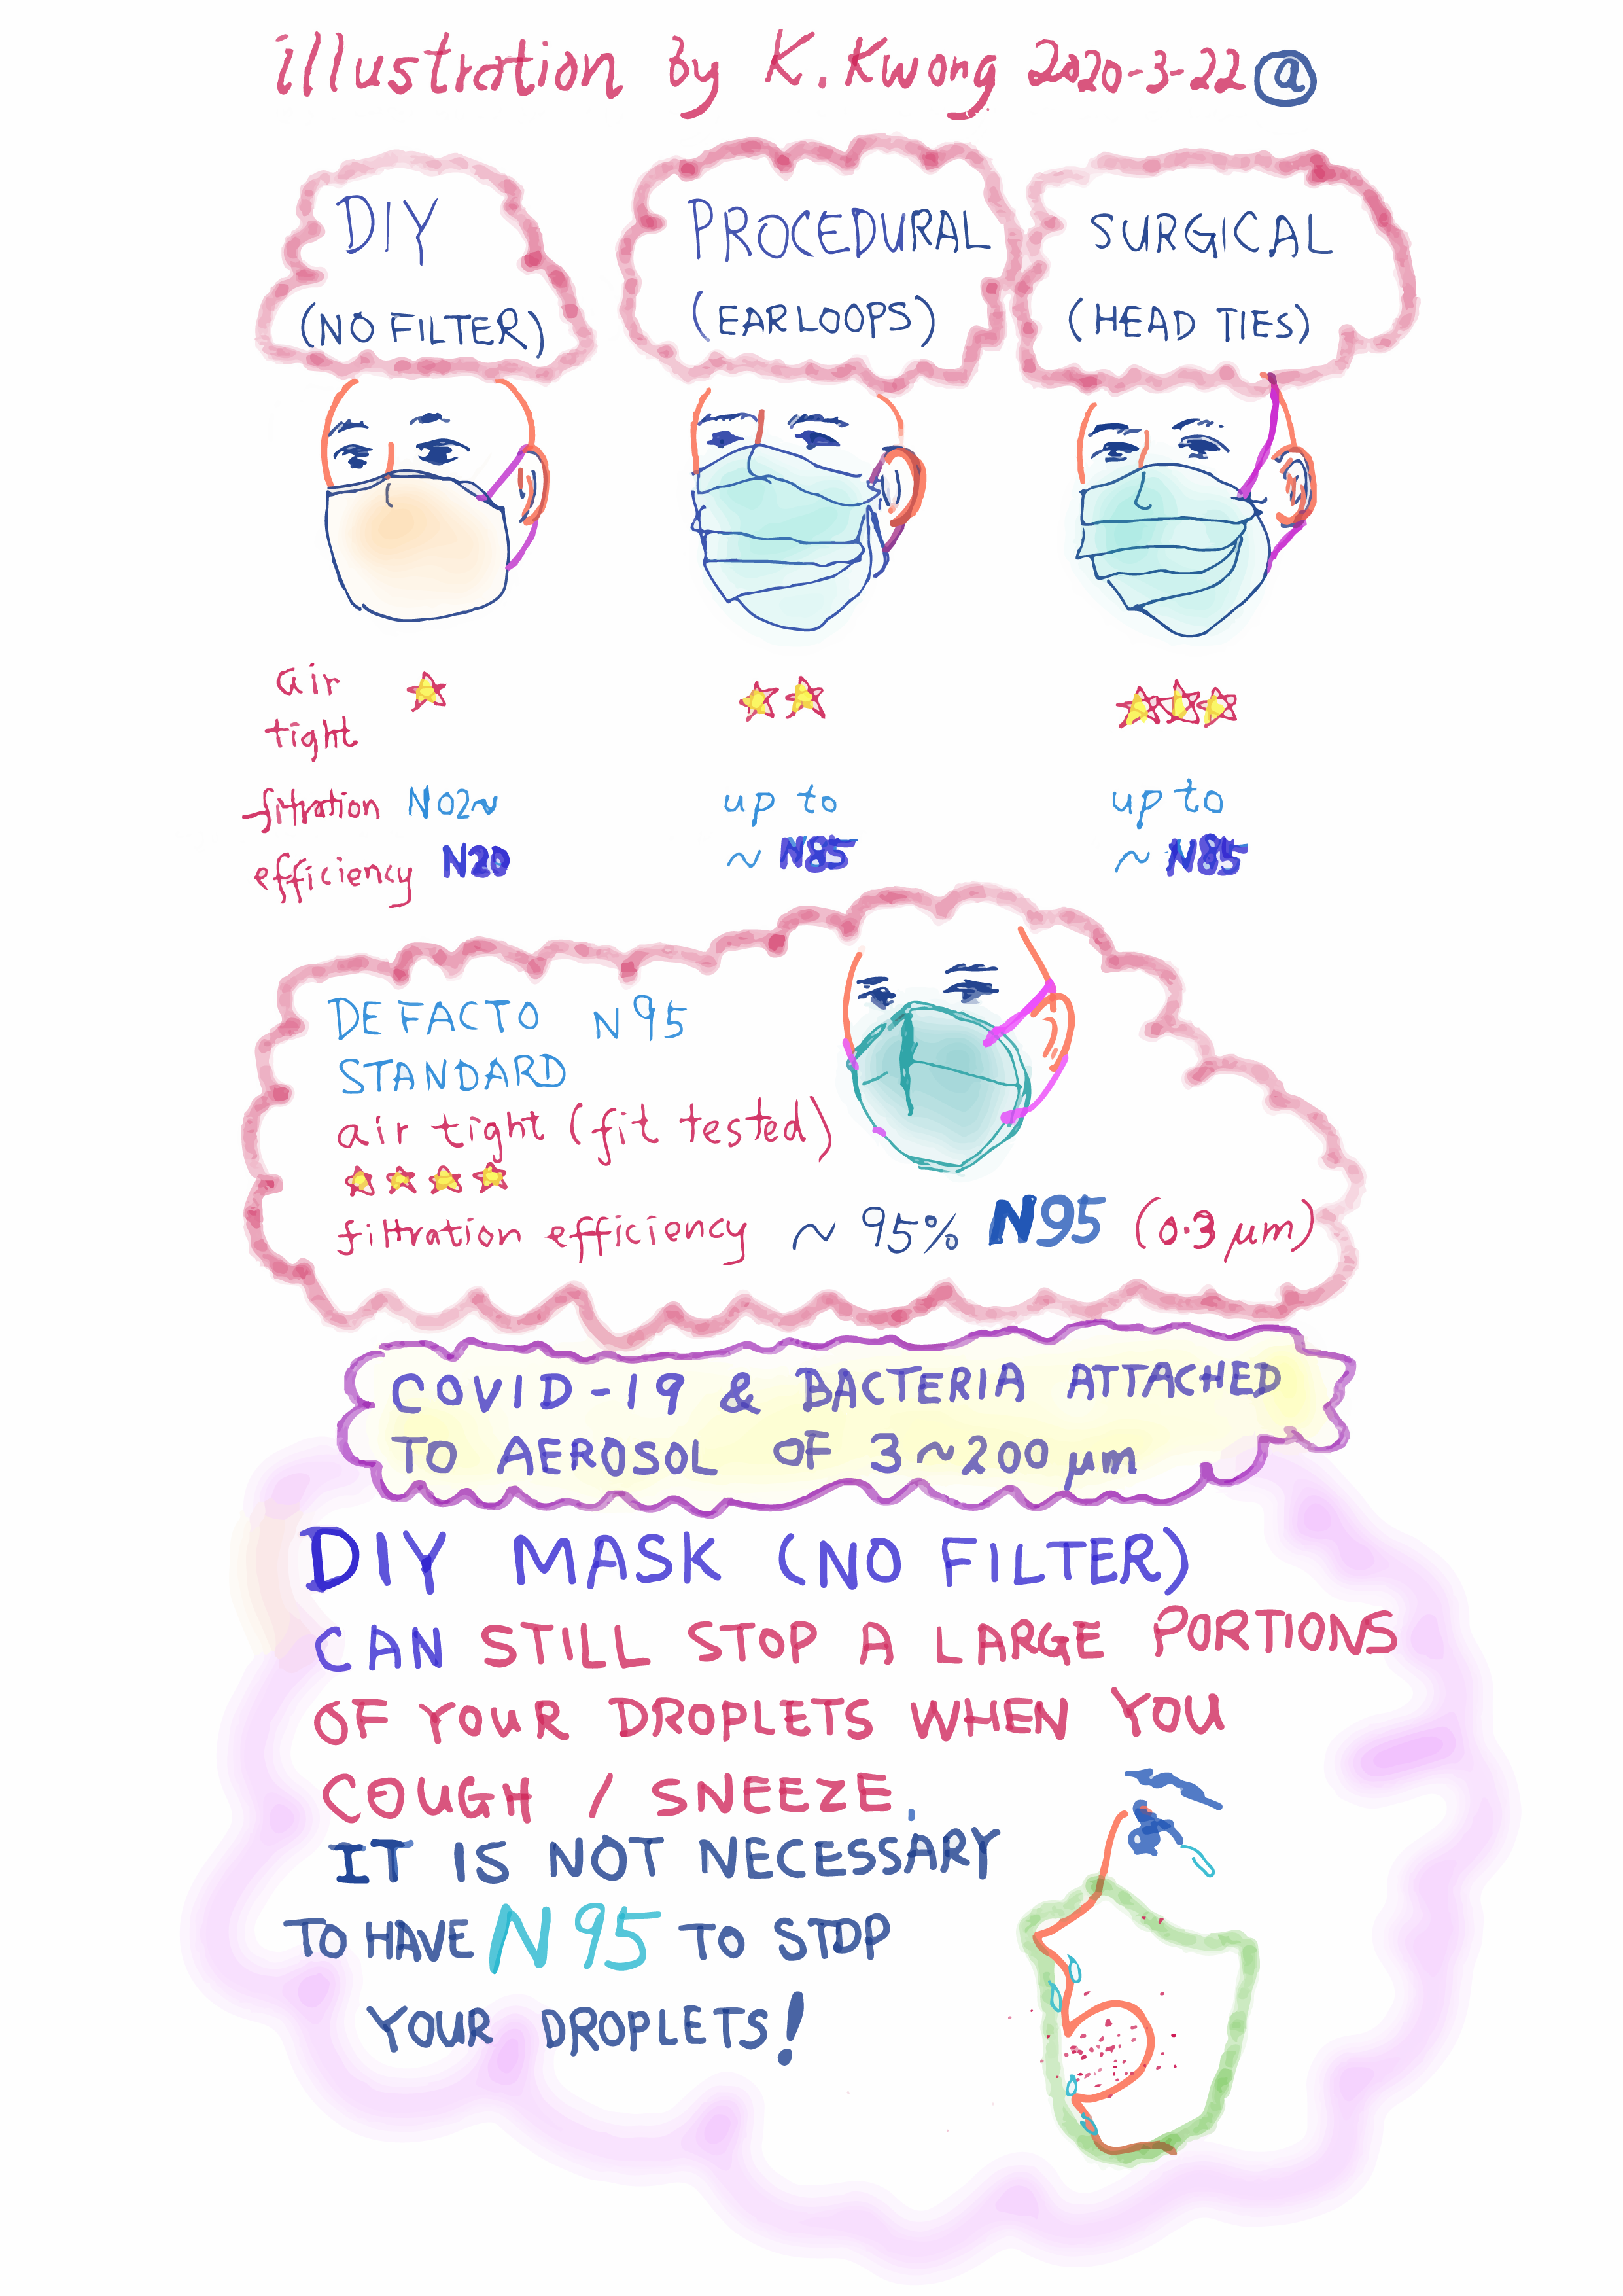 illustration by K. Kwong 2020-3-22 @
DIY
(NO FILTER)
PROCEDURAL
(EAR LOOPS)
SURGICAL
(HEAD TIES)
air
tight
filtration NO2~
efficiency N20
up to
~ N85
up to
~ N85
DE FACTO N95
STANDARD
air tight (fit tested)
filtration efficiency ~ 95% N95 (0.3 μm)
COVID-19 & BACTERIA ATTACHED
TO AEROSOL OF 3~200 μm
DIY MASK (NO FILTER)
CAN STILL STOP A LARGE PORTIONS
OF YOUR DROPLETS WHEN YOU
COUGH / SNEEZE,
IT IS NOT NECESSARY
TO HAVE N95 TO STOP
YOUR DROPLETS!